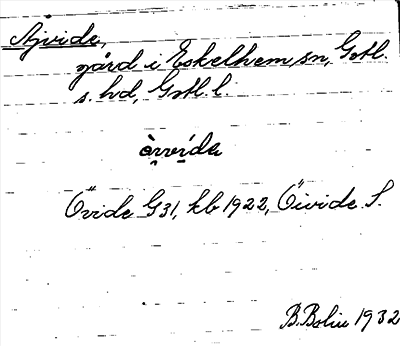 Ajvide,
gård i Eskelhem sn, Gotl.
s. hd, Gotl. l.
Övide G31, kb 1922, Öivide S.
B. Bolin 1932